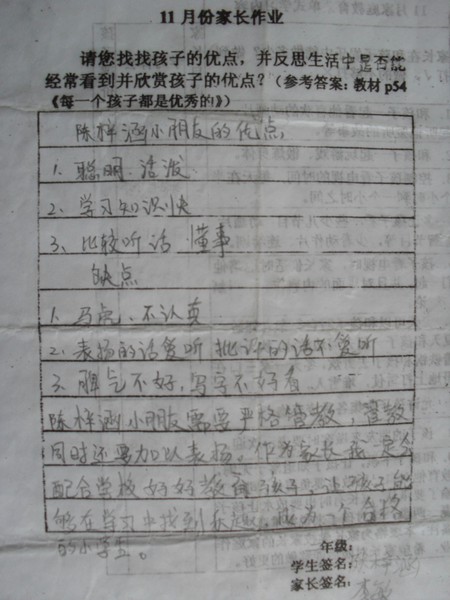 11月份家长作业
请您找找孩子的优点，并反思生活中是否能
经常看到并欣赏孩子的优点？（参考答案：教材p54
《每一个孩子都是优秀的》）
陈梓涵小朋友的优点
1. 聪明、活泼
2、学习知识快
3、比较听话 懂事
缺点
1. 马虎、不认真
2. 表扬的话爱听 批评的话不爱听
3. 脾气不好，写字不好看
陈梓涵小朋友需要严格管教，管教
同时还要加以表扬。作为家长我定会
配合学校好好教育孩子，让孩子能
够在学习中找到乐趣，成为一个合格
的小学生。
年级：
学生签名：
家长签名：